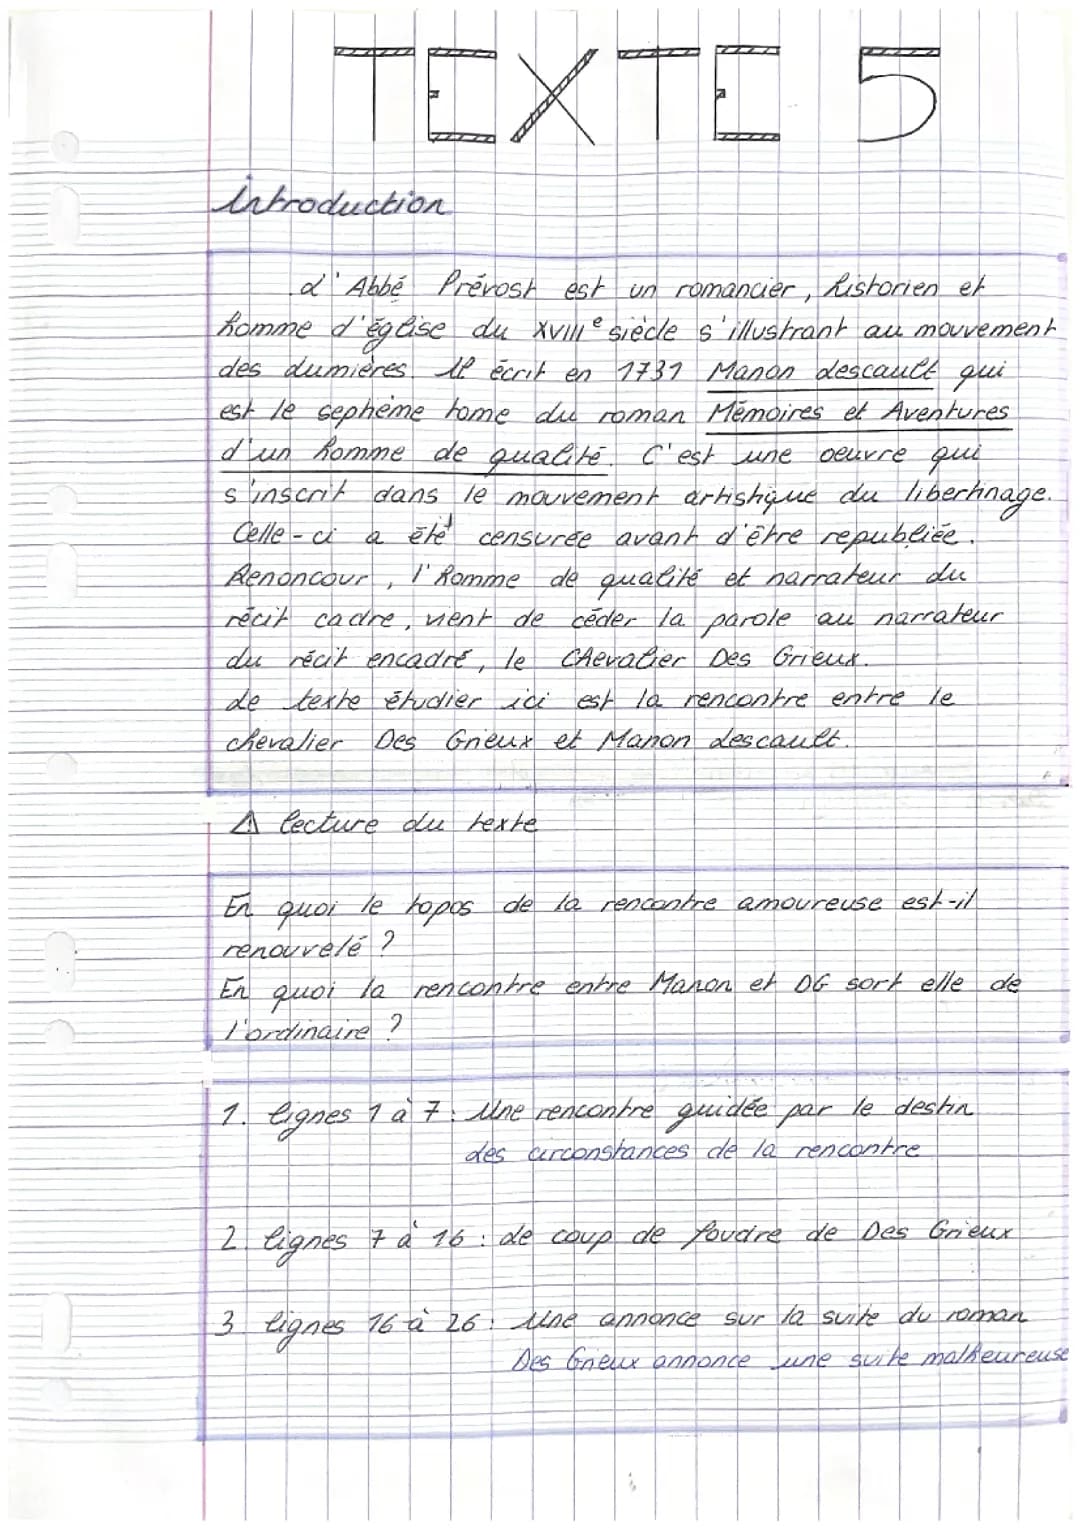 TEXTE 5
introduction
L'Abbé Prévost est un romancier, historien et
homme d'église du XVIIIe siècle s'illustrant au mouvement
des Lumières. Il écrit en 1731 Manon Lescault qui
est le septième tome du roman Mémoires et Aventures
d'un homme de qualité. C'est une oeuvre qui
s'inscrit dans le mouvement artistique du libertinage.
Celle-ci a été censurée avant d'être republiée.
Renoncour, l'homme de qualité et narrateur du
récit cadre, vient de céder la parole au narrateur
du récit encadré, le Chevalier Des Grieux.
Le texte étudier ici est la rencontre entre le
chevalier Des Grieux et Manon Lescault.
⚠ lecture du texte
En quoi le topos de la rencontre amoureuse est-il
renouvelé ?
En quoi la rencontre entre Manon et DG sort elle de
l'ordinaire ?
1. lignes 1 à 7 : Une rencontre guidée par le destin
Les circonstances de la rencontre
2. lignes 7 à 16 : Le coup de foudre de Des Grieux
3 lignes 16 à 26 : Une annonce sur la suite du roman
Des Grieux annonce une suite malheureuse